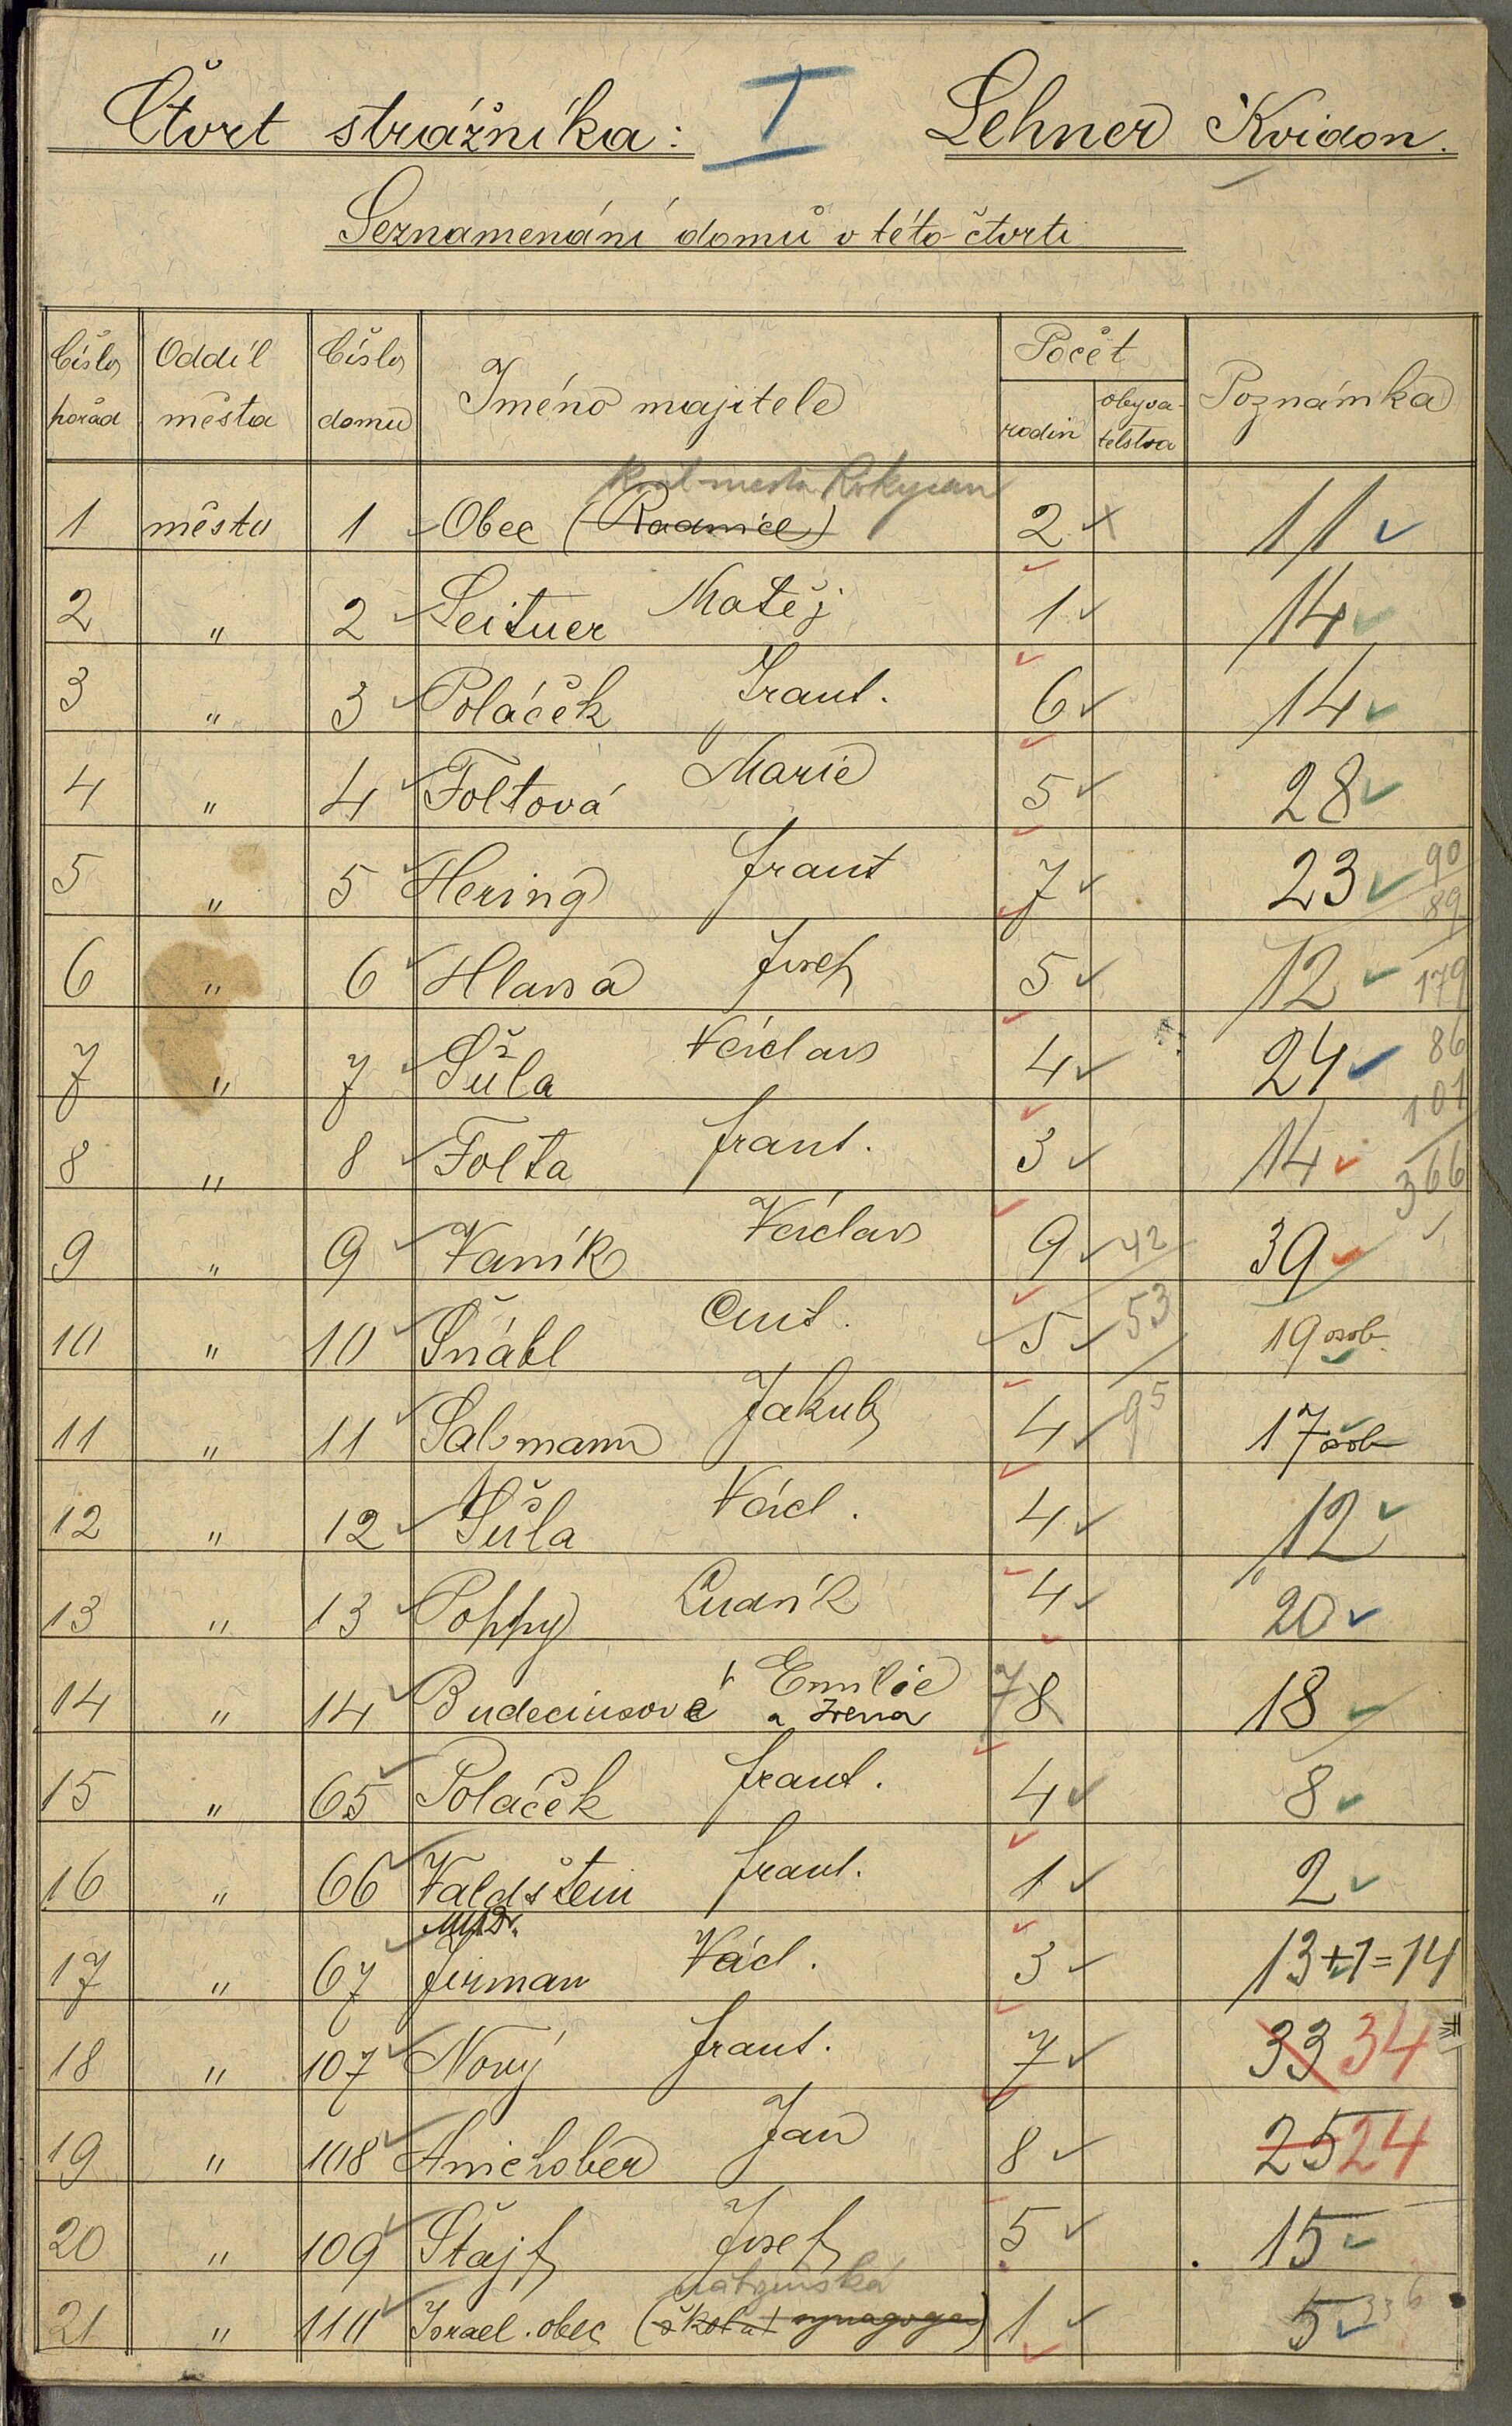 Čtvrt strážníka: I Lehner Kvidon.
Seznamenání domů v této čtvrti
Číslo pořád Oddíl města Číslo domu Jméno majitele Počet rodin obyvatelstva Poznámka
král. města Rokycan
1 městu 1 Obec (Radnice) 2 11
2 " 2 Leitner Matěj 1 14
3 " 3 Poláček Frant. 6 14
4 " 4 Foltová Marie 5 28
5 " 5 Hering Frant 7 23 90 89
6 " 6 Hlava Josef 5 12 179
7 " 7 Šůla Václav 4 24 86 101
8 " 8 Folta Frant. 3 14 366
9 " 9 Vaník Václav 9 42 39
10 " 10 Šnábl Ant. 5 53 19 osob
11 " 11 Salzmann Jakub 4 95 17 osob
12 " 12 Šůla Václ. 4 12
13 " 13 Poppy Ludvík 4 20
14 " 14 Budeciusové Emilie a Irena 7 8 18
15 " 65 Poláček Frant. 4 8
16 " 66 Valdštein Frant. 1 2
MUDr.
17 " 67 Jirman Václ. 3 13+1=14
18 " 107 Nový Frant. 7 33 34
19 " 108 Amchober Jan 8 25 24
20 " 109 Štajf Josef 5 15
nábženská
21 " 110 Israel. obec (škola synagoga) 1 5 336